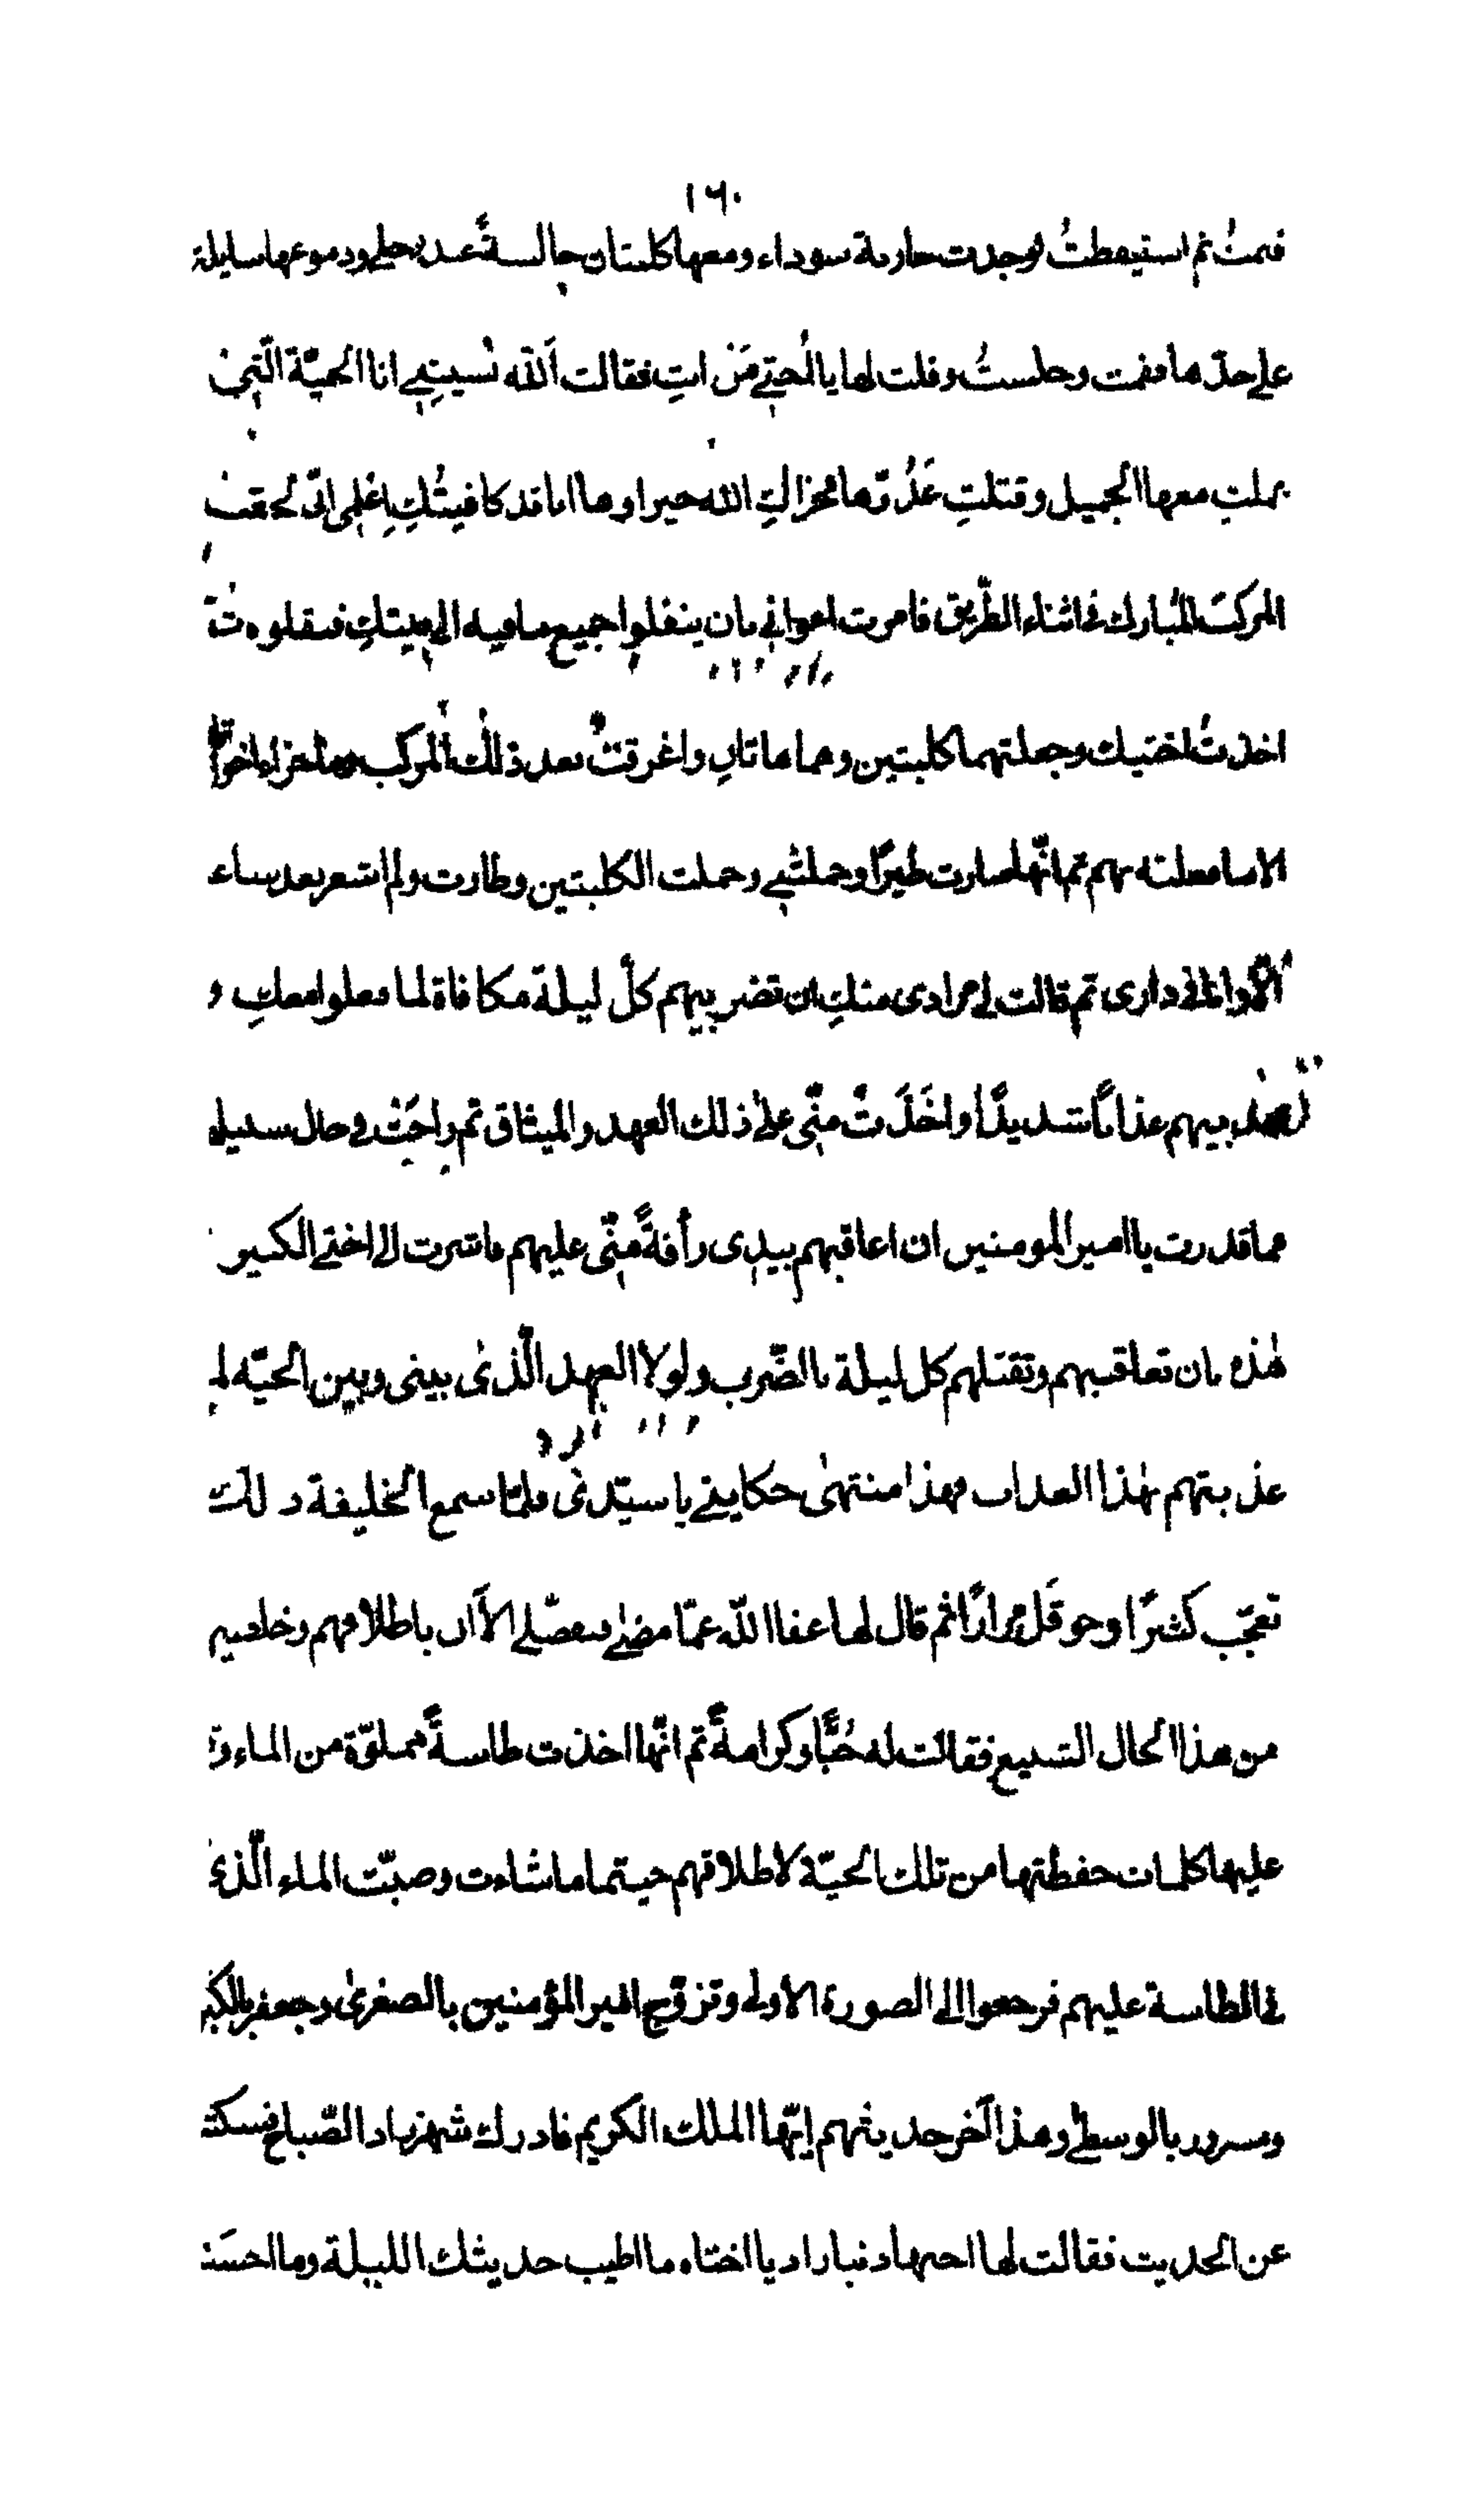 ١٦٠
فنمتُ ثم استيقظتُ فوجدت جارية سوداء ومعها كلبتان جالسةً عند رجلي ودموعها سايلة
على خدّها فقمت وجلستُ وقلت لها يا اُختي مَن انتِ فقالت اَللّه نسيتِني انا الحيّة الّتي
عملتِ معها الجميل وقتلتِ عَدُوّها فجزاكِ اللّه خيرا وها انا قد كافيتُكِ اِعلمي انّي لحقت
المركبَ المبارك في اثناء الطّريق فامرت اعواني بان ينقلوا جميع ما فيه الى بيتكِ فنقلوه ثمّ
اخذتُ اختيك وجعلتهما كلبتين وهما هاتانِ واغرقتُ بعد ذالك المركب
الا بما فعلته بهم ثم انّها صارت طيرًا وحملتني وحملت الكلبتين وطارت ولم اشعر بعد ساعة
الّا وانا في داري ثم قالت لي مرادي منكِ ان تضربيهم كلّ ليلة مكافاة لما فعلوا معكِ و
تعذبيهم عذابًا شديدًا واخَذَتْ منّي على ذلك العهد والميثاق ثم راحَتْ في حال سبيلها
فما قدرت يا امير المومنين ان اعاقبهم بيدى رأفةً منّي عليهم فاشرت الى اختي الكبيرة
هٰذه بان تعاقبهم وتقتلهم كل ليلة باالضّرب ولولا العهد الّذى بينى وبين الحيّه لما
عذبتهم بهٰذا العذاب فهذا منتهىٰ حكايتي يا سيّدى فلمّا سمع الخليفة ذلك
تعجّب كثيرًا وحوقَل مرارًا ثم قال لها عفا اللّه عمّا مضىٰ تفضّلي الاٰن باطلاقهم وخلصيهم
من هذا الحال الشنيع فقالت له حُبًّا وكرامةً ثم انّها اخذت طاسةً مملوّة من الماء وقرأت
عليها كلمات حفظتها من تلك الحيّة لاطلاقهم حيثما ما شاءت وصبّت الماء الّذى
في الطاسة عليهم فرجعوا الى الصورة الاولى وتزوّج امير المؤمنين بالصغرىٰ وجعفر بالكبرى
ومسرور بالوسطى وهذا اٰخر حديثهم ايّها الملك الكريم فادرك شهرزاد الصّباح فسكتت
عن الحديث فقالت لها اختها دنيازاد يا اختاه ما اطيب حديثك الليلة وما احسَنه